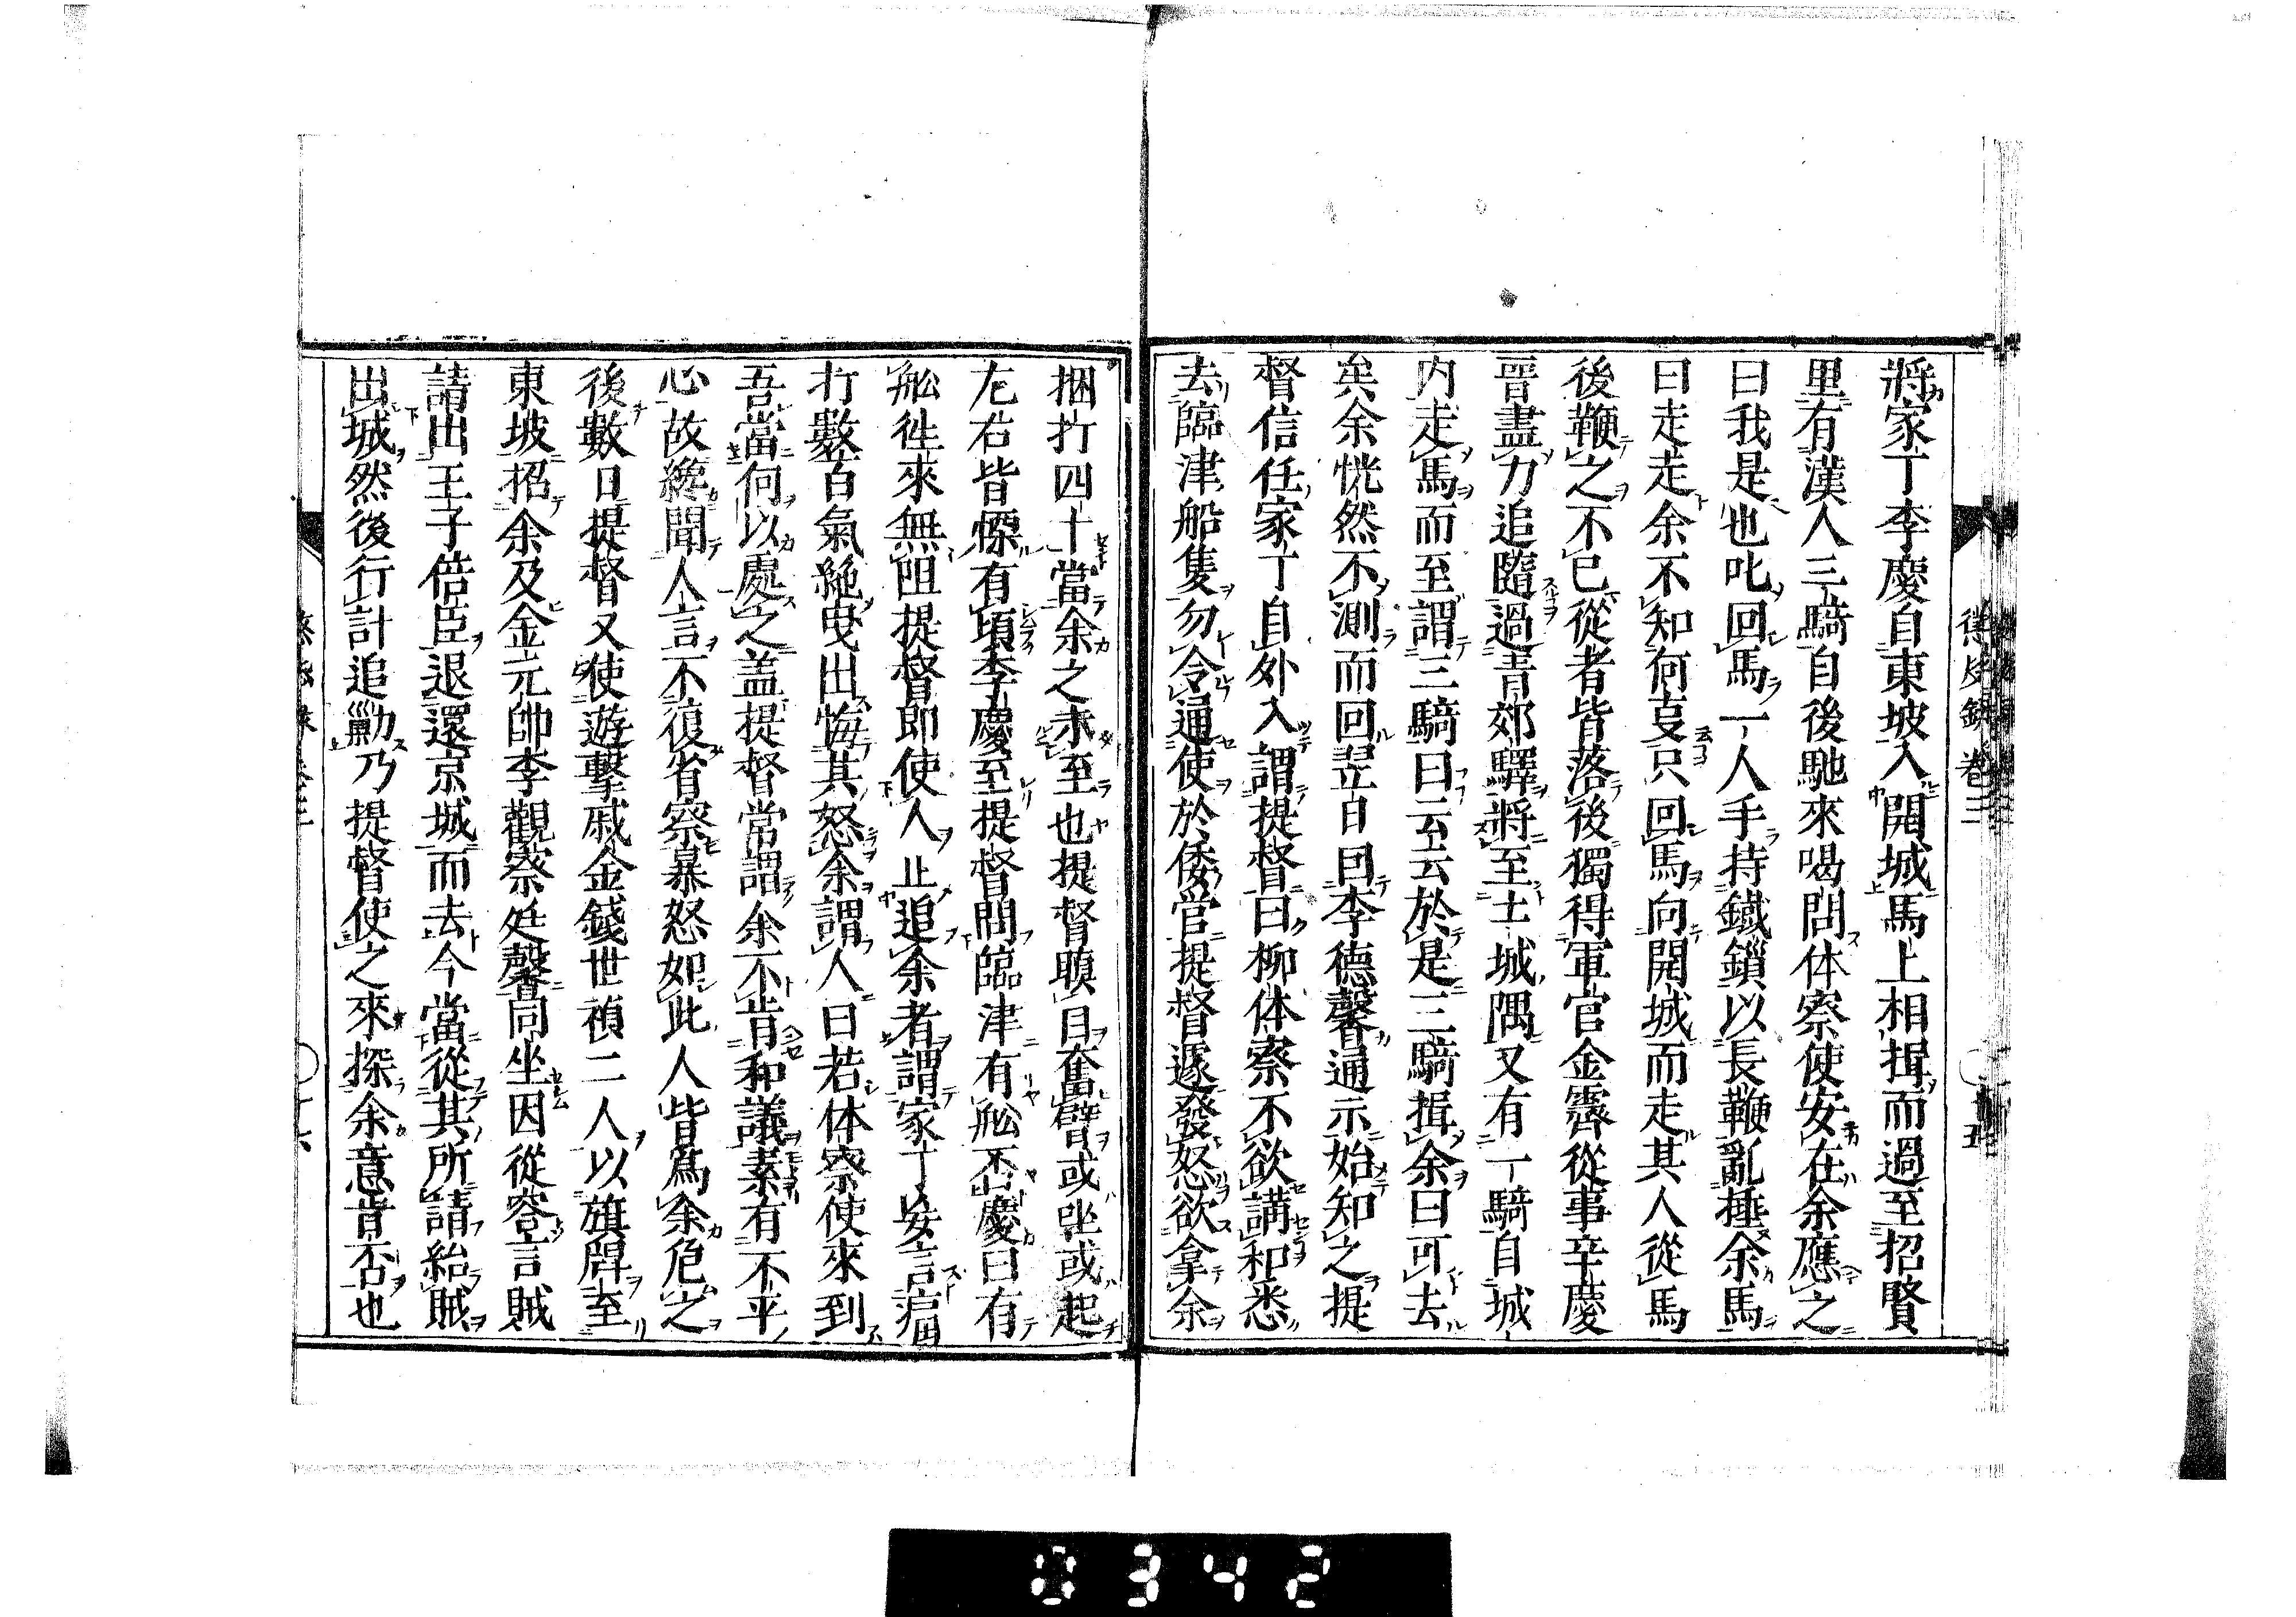 懲毖録卷三
將家丁李慶自東坡入開城馬上相揖而過至招賢
里有漢人三騎自後馳來喝問体察使安在余應之
曰我是也叱回馬一人手持鐵鎖以長鞭亂捶余馬
曰走走余不知何㕝只回馬向開城而走其人從馬
後鞭之不已從者皆落後獨得軍官金霽從事辛慶
晉盡力追隨過青郊驛將至土城隅又有一騎自城
内走馬而至謂三騎曰云云於是三騎揖余曰可去
矣余恍然不測而回翌日因李德馨通示始知之提
督信任家丁自外入謂提督曰柳体察不欲講和悉
去臨津船隻勿令通使於倭営提督遽發怒欲拿余
捆打四十當余之未至也提督瞋目奮臂或坐或起
左右皆慄有頃李慶至提督問臨津有舩否慶曰有
舩徃來無阻提督即使人止追余者謂家丁妄言痛
打數百氣絶曳出悔其怒余謂人曰若体察使來到
吾當何以處之盖提督常謂余不肯和議素有不平
心故纔聞人言不復省察暴怒如此人皆爲余危之
後數日提督又使遊擊戚金錢世禎二人以旗牌至
東坡招余及金元帥李觀察廷馨同坐因從容言賊
請出王子倍臣退還京城而去今當從其所請紿賊
出城然後行計追勦乃提督使之來探余意肯否也
0342